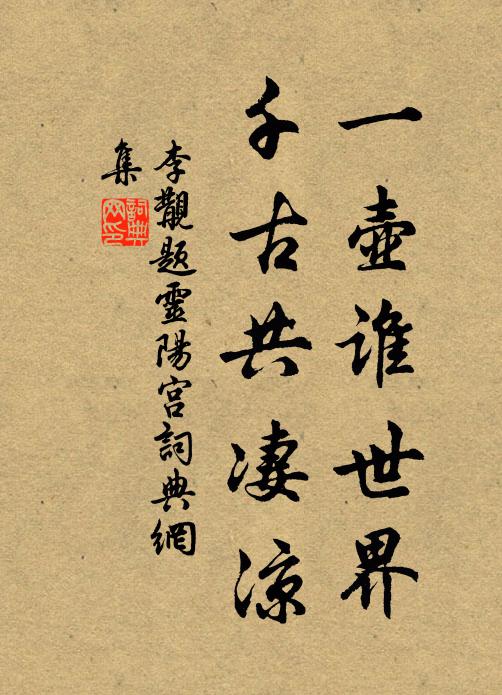 一壺誰世界
千古共凄涼
李觀題靈陽宮詞典網
集
詞典網印